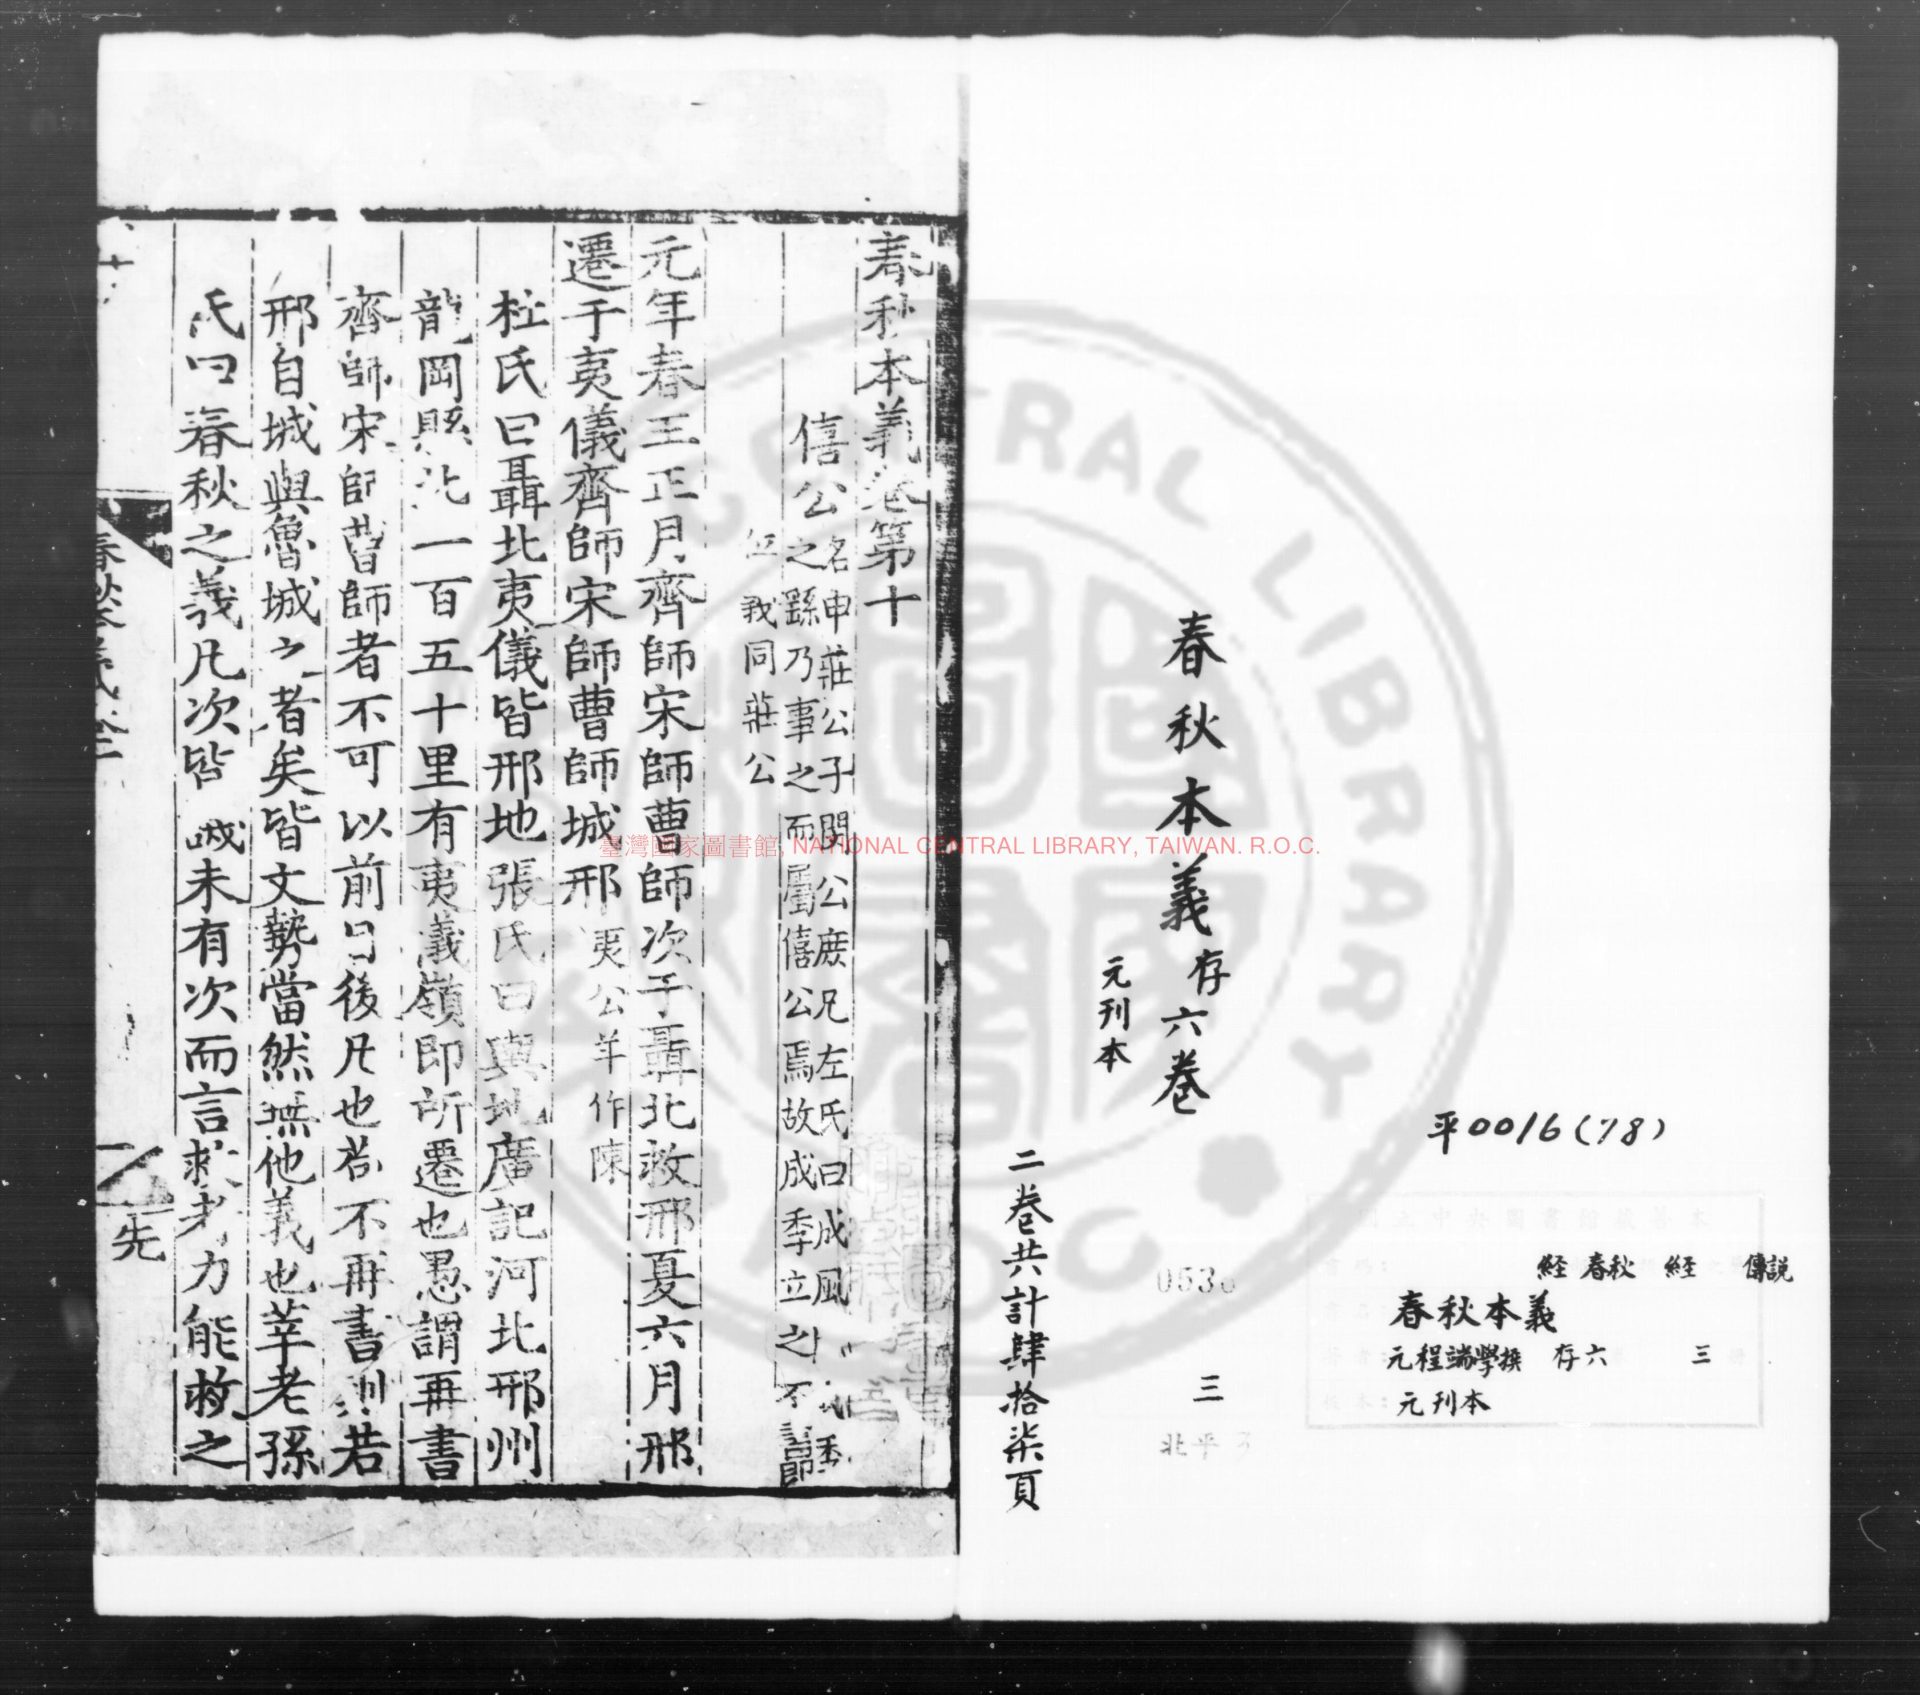 春秋本義存六卷
元刊本
二卷共計肆拾柒頁
平0016(78)
經 春秋 經 傳說
春秋本義
元程端學撰 存六 三
元刊本
三
北平
春秋本義卷第十
僖公
名申莊公子閔公庶兄左氏曰成風
之繇乃事之而屬僖公焉故成季立之不
我同莊公
元年春王正月齊師宋師曹師次于聶北救邢夏六月邢
遷于夷儀齊師宋師曹師城邢夷公羊作陳
杜氏曰聶北夷儀皆邢地張氏曰輿地廣記河北邢州
龍岡縣北一百五十里有夷義嶺即所遷也愚謂再書
齊師宋師曹師者不可以前目後凡也若不再書則若
邢自城與魯城之者矣皆文勢當然無他義也莘老孫
氏曰春秋之義凡次皆譏未有次而言救者力能救之
先
臺灣國家圖書館, NATIONAL CENTRAL LIBRARY, TAIWAN. R.O.C.
CENTRAL LIBRARY